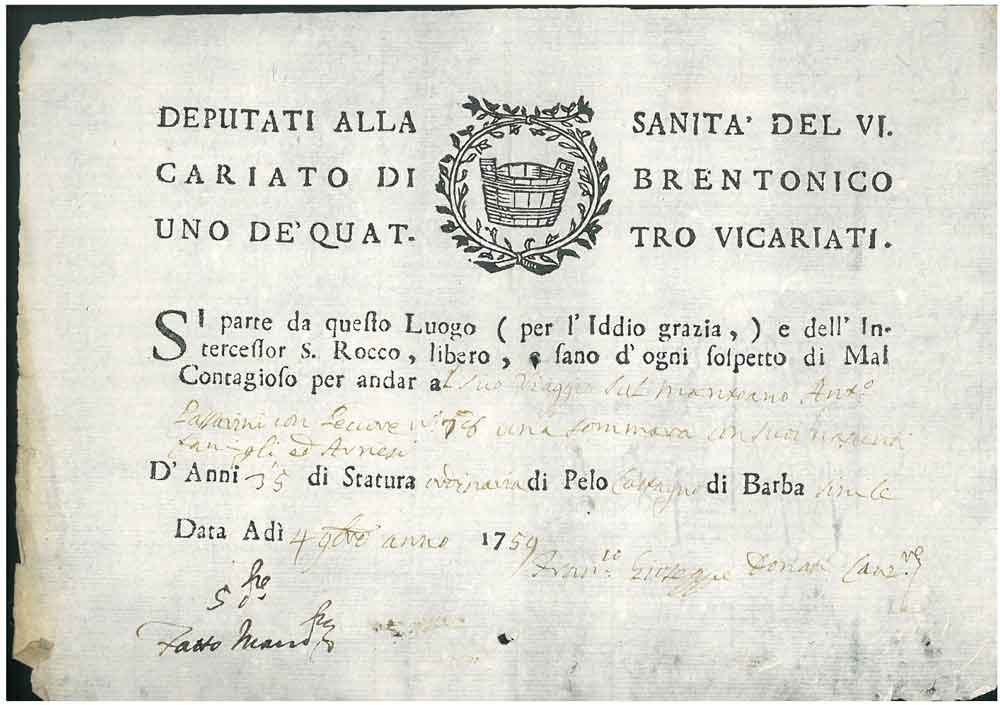 DEPUTATI ALLA SANITA' DEL VI.
CARIATO DI BRENTONICO
UNO DE'QUAT- TRO VICARIATI.
SI parte da queſto Luogo ( per l'Iddio grazia, ) e dell'In-
terceſſor S. Rocco, libero, e ſano d'ogni ſoſpetto di Mal
Contagioſo per andar al suo viaggio sul mantoano Ant.º
con Pecore una sommara con suoi
ed Arnesi
D'Anni 35 di Statura ordinaria di Pelo Castagno di Barba simile
Data Adì 4 9bre anno 1759
Giuseppe Canz.re